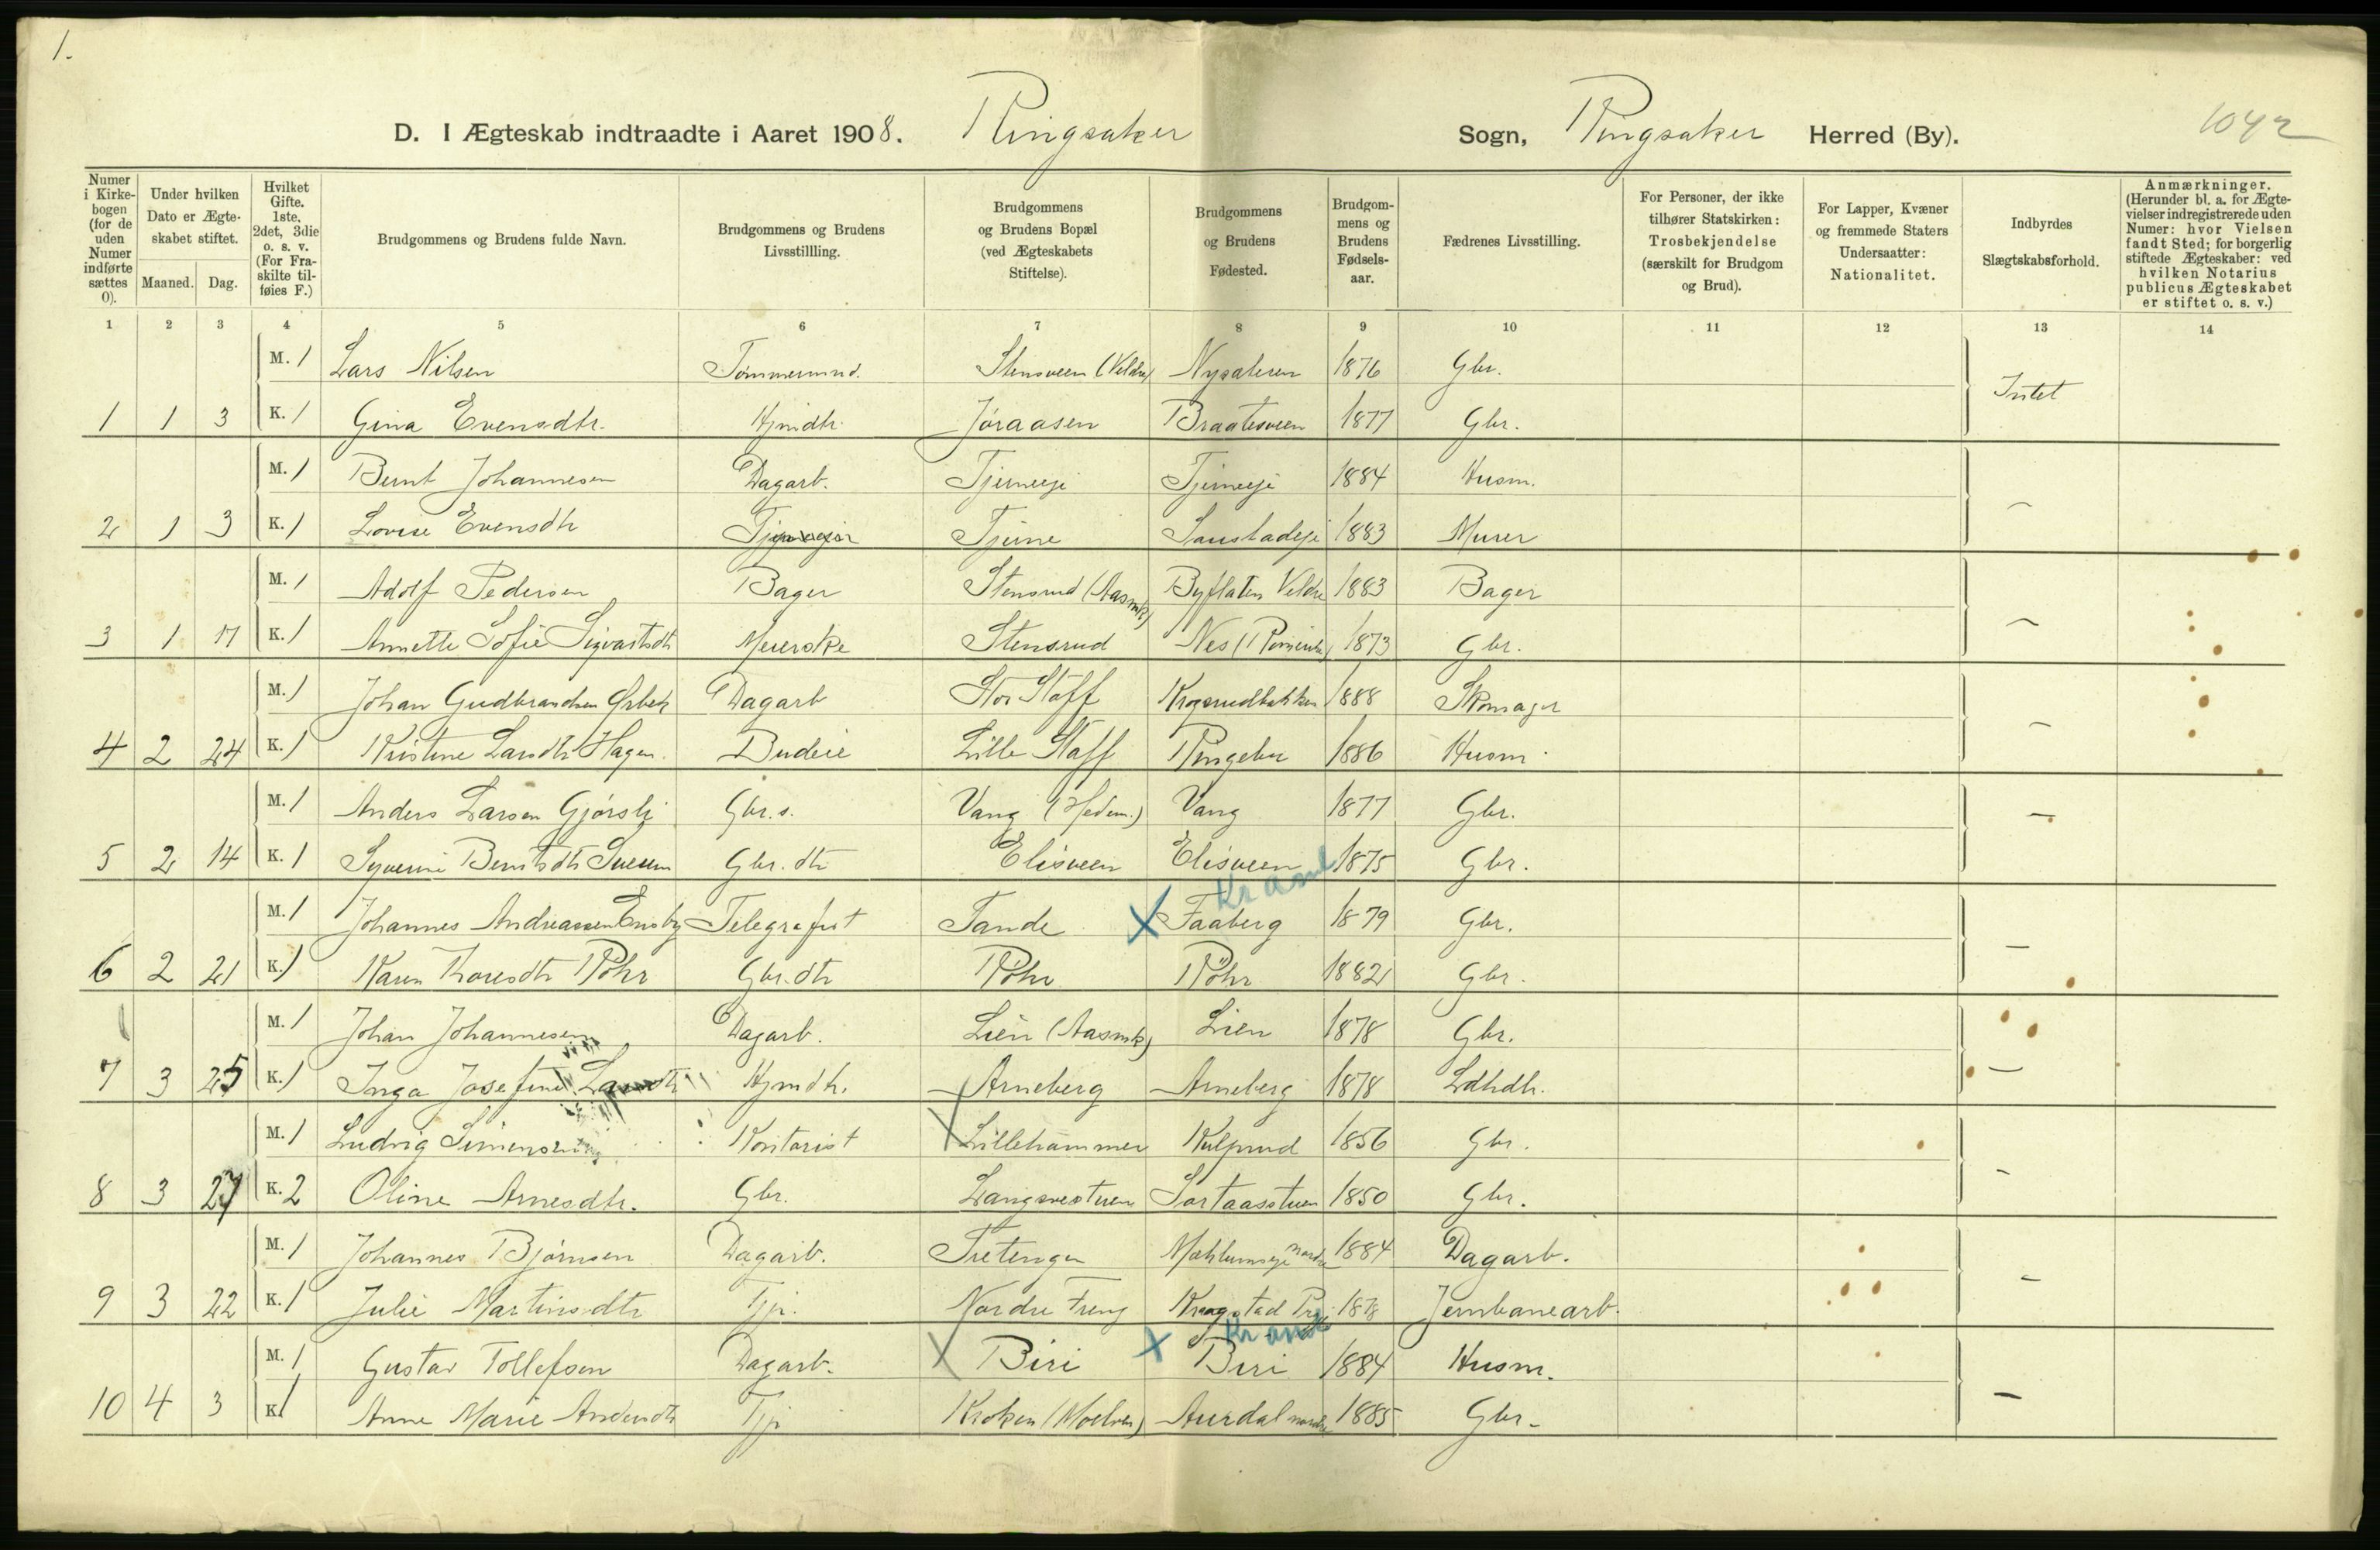 1.
D. I Ægteskab indtraadte i Aaret 1908. Ringsaker Sogn, Ringsaker Herred (By). 1042
Numer i Kirkebogen (for de uden Numer indførte sættes 0).
Under hvilken Dato er Ægteskabet stiftet.
Maaned. Dag.
Hvilket Gifte. 1ste, 2det, 3die o. s. v. (For Fraskilte tilføies F.)
Brudgommens og Brudens fulde Navn.
Brudgommens og Brudens Livsstillling.
Brudgommens og Brudens Bopæl (ved Ægteskabets Stiftelse).
Brudgommens og Brudens Fødested.
Brudgommens og Brudens Fødselsaar.
Fædrenes Livsstilling.
For Personer, der ikke tilhører Statskirken: Trosbekjendelse (særskilt for Brudgom og Brud).
For Lapper, Kvæner og fremmede Staters Undersaatter: Nationalitet.
Indbyrdes Slægtskabsforhold.
Anmærkninger. (Herunder bl. a. for Ægtevielser indregistrerede uden Numer: hvor Vielsen fandt Sted; for borgerlig stiftede Ægteskaber: ved hvilken Notarius publicus Ægteskabet er stiftet o. s. v.)
1 2 3 4 5 6 7 8 9 10 11 12 13 14
M. 1 Lars Nilsen Tømmermnd. Stensveen (Veldre) Nysæteren 1876 Gbr. Intet
1 1 3 K. 1 Gina Evensdtr. Hjmdtr. Jøraasen Braatesveen 1877 Gbr.
M. 1 Bernt Johannesen Dagarb. Tjerneeje Tjerneeje 1884 Husm.
2 1 3 K. 1 Lovise Evensdtr Tjerne 1883 Murer –
M. 1 Adolf Pedersen Bager Stensrud (Aasmk) Byflaten Veldre 1883 Bager
3 1 17 K. 1 Annette Sofie Sigvartsdtr Meierske Stensrud Nes 1873 Gbr. –
M. 1 Johan Gudbrandsen Dagarb Stor Staff Krogsrudbakken 1888 Skomager
4 2 24 K. 1 Kristine Larsdtr Hagen. Budeie Lille Staff Ringebu 1886 Husm. –
M. 1 Anders Larsen Gjørsli Gbr. s. Vang (Hedem.) Vang 1877 Gbr. –
5 2 14 K. 1 Syverine Berntsdtr Gbr. dtr Elisveen Elisveen 1875 Gbr.
Kr aml
M. 1 Johannes Andreassen Ensby Telegrafist Tande X Faaberg 1879 Gbr.
6 2 21 K. 1 Karen Thoresdtr Röhr Gbr. dtr Röhr Röhr 1882 Gbr. –
M. 1 Johan Johannesen Dagarb. Lien (Aasmk) Lien 1878 Gbr.
7 3 25 K. 1 Inga Josefine Larsdtr Hjmdtr. Arneberg Arneberg 1878 Ldhdlr. –
M. 1 Ludvig Simensen Kontorist X Lillehammer Kulsrud 1856 Gbr.
8 3 27 K. 2 Oline Arnesdtr. Gbr. Langsvestuen 1850 Gbr. –
M. 1 Johannes Bjørnsen Dagarb. Tretengen Mæhlumseje nordre 1884 Dagarb.
9 3 22 K. 1 Julie Martinsdtr Tjp. Nordre Treng 1878 Jernbanearb. –
Kr aml
M. 1 Gustav Tollefsen Dagarb. X Biri X Biri 1884 Husm.
10 4 3 K. 1 Anne Marie Andersdtr Tjp Kroken (Moelven) Aurdal nordre 1885 Gbr. –